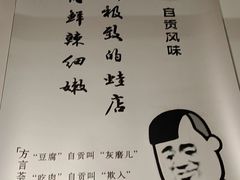 自贡风味
极致的蛙店
鲜辣细嫩
方言荟
“豆腐”自贡叫“灰磨儿”
“吃肉”自贡叫“欺入”